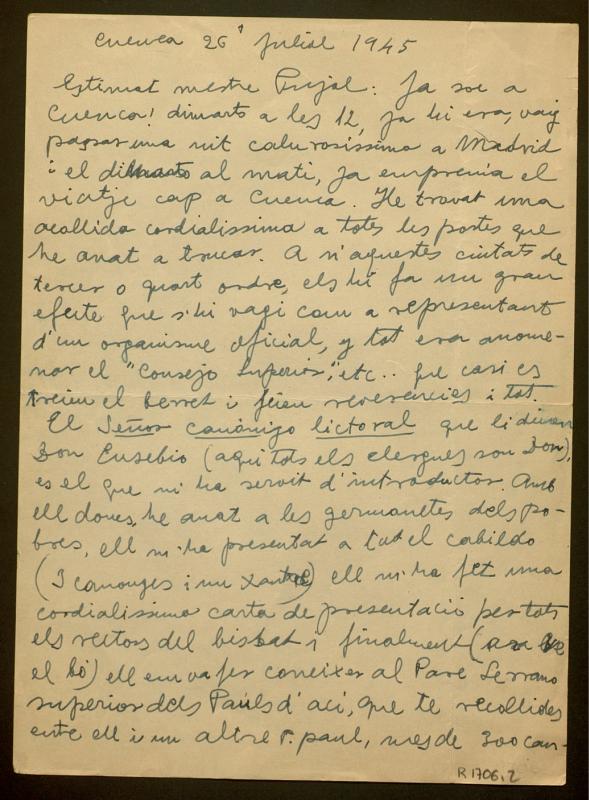 Cuenca 26 juliol 1945
Estimat mestre Pujol: Ja soc a
Cuenca! dimarts a les 12, ja hi era, vaig
passar una nit calurosissima a Madrid
i el dimarts al mati, ja emprenia el
viatje cap a Cuenca. He trovat una
acollida cordialissima a totes les portes que
he anat a trucar. A n'aquestes ciutats de
tercer o quart ordre, els hi fa un gran
efecte que s'hi vagi com a representant
d'un organisme oficial, y tot era anome-
nar el "Consejo Superior", etc.. que casi es
treien el berret i feien reverencies i tot.
El Señor canónigo lictoral que li diuen
Don Eusebio (aqui tots els clergues son Don),
es el que m'ha servit d'introductor. Amb
ell doncs, he anat a les germanetes dels po-
bres, ell m'ha presentat a tot el cabildo
(3 canonges i un xantre) ell m'ha fet una
cordialissima carta de presentació per tots
els rectors del bisbat i finalment (ara ve
el bó) ell em va fer coneixer al Pare Serrano
superior dels Paüls d'aci, que te recollides
entre ell i un altre P. paul, mes de 300 can-
R 1706,2